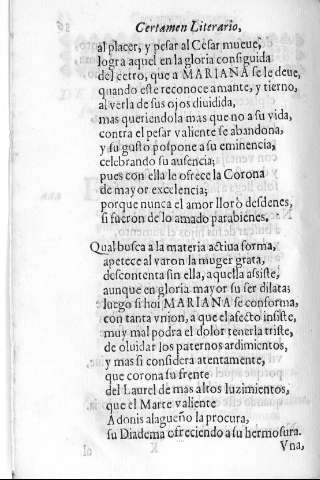 Certamen Literario,
al placer, y pesar al Cèsar mueue,
logra aquel en la gloria conseguida
del cetro, que a MARIANA se le deue,
quando este reconoce amante, y tierno,
al verla de sus ojos diuidida,
mas queriendola mas que no a su vida,
contra el pesar valiente se abandona,
y su gusto pospone a su eminencia,
celebrando su ausencia;
pues con ella le ofrece la Corona
de mayor excelencia;
porque nunca el amor llorò desdenes,
si fueron de lo amado parabienes.
Qual busca a la materia actiua forma,
apetece al varon la muger grata,
descontenta sin ella, aquella assiste,
aunque en gloria mayor su ser dilata;
luego si hoi MARIANA se conforma,
con tanta vnion, a que el afecto insiste,
muy mal podra el dolor tenerla triste,
de oluidar los paternos ardimientos,
y mas si considera atentamente,
que corona su frente
del Laurel de mas altos luzimientos,
que el Marte valiente
Adonis alagueño la procura,
su Diadema ofreciendo a su hermosura.
Vna,